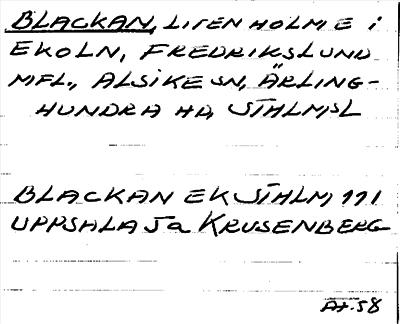 BLACKAN, LITEN HOLME i
EKOLN, FREDRIKSLUND
MFL., ALSIKE SN, ÄRLING-
HUNDRA HD, STHLMSL
BLACKAN EK STHLM 111
UPPSALA Ja KRUSENBERG
At. 58